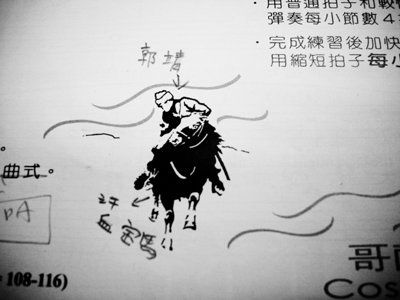 · 用普通拍子和較
彈奏每小節數4
· 完成練習後加快
用縮短拍子每小
郭靖
曲式。
汗
血 寶馬
108-116)
哥
Cos